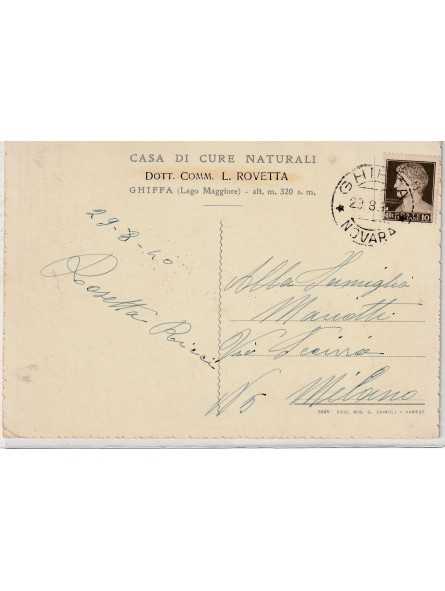 CASA DI CURE NATURALI
DOTT. COMM. L. ROVETTA
GHIFFA (Lago Maggiore) - alt. m. 320 s. m.
GHIFFA
29.8.
NOVARA
10 10
29-8-40
Rosetta Ricci
Alla Famiglia
Manotti
Via
N 5
Milano